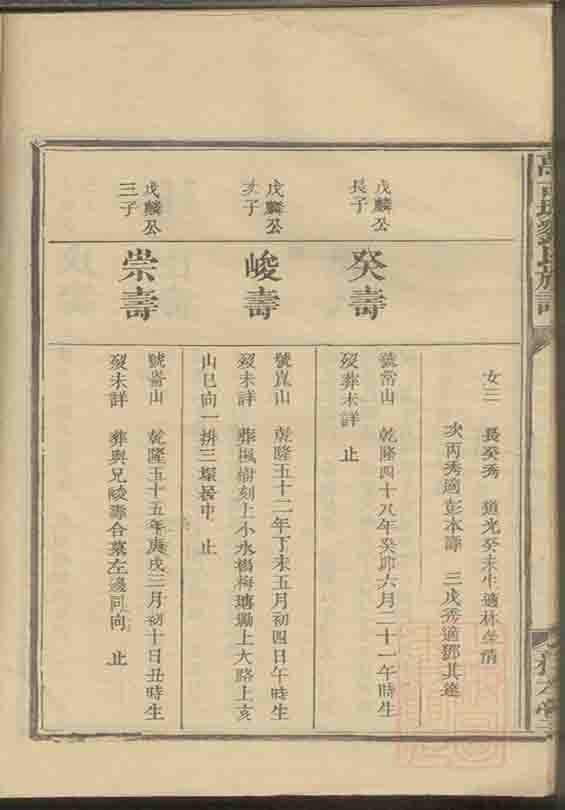 女三 長癸秀 道光癸未生適林
次丙秀適彭本壽 三戊秀適鄧其
戊麟公
長子
癸壽
號嵩山 乾隆四十八年癸卯六月二十一午時生
歿葬未詳 止
戊麟公
次子
峻壽
號崑山 乾隆五十二年丁未五月初四日午時生
歿未詳 葬楓樹刻上小水楊梅塘墈上大路上亥
山巳向一排三塚居中 止
戊麟公
三子
崇壽
號崙山 乾隆五十五年庚戌三月初十日丑時生
歿未詳 葬與兄峻壽合墓左邊同向 止
氏族譜